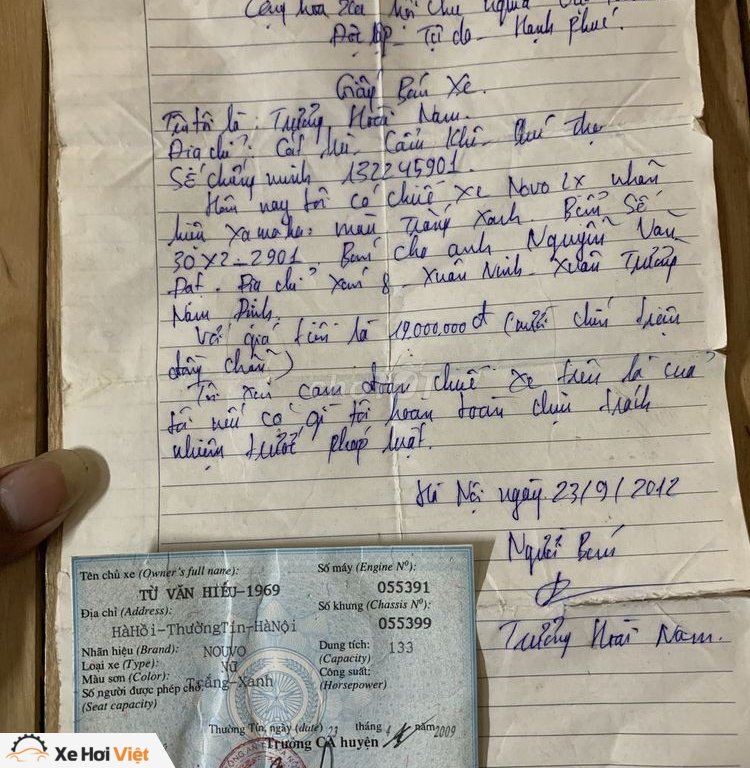 Cộng hòa Xã hội Chủ nghĩa Việt
Độc lập - Tự do - Hạnh phúc.
Giấy Bán Xe.
Tên tôi là : Trưởng Hoài Nam.
Địa chỉ : Cát Trù - Cẩm Khê - Phú Thọ
Số chứng minh 132245901.
Hôm nay tôi có chiếc xe Novo LX nhãn
hiệu Yamaha: màu Trắng Xanh. Biển Số
30X2-2901. Bán cho anh Nguyễn Văn
Đạt. Địa chỉ Xóm 8 - Xuân Ninh - Xuân Trường
Nam Định.
Với giá tiền là 19.000.000đ (mười chín triệu
đồng chẵn)
Tôi xin cam đoan chiếc xe trên là của
tôi nếu có gì tôi hoàn toàn chịu trách
nhiệm trước pháp luật.
Hà Nội ngày 23/9/2012
Người Bán
Trưởng Hoài Nam.
Tên chủ xe (Owner's full name):
TỪ VĂN HIẾU-1969
Số máy (Engine Nº):
055391
Địa chỉ (Address):
HàHồi-ThườngTín-HàNội
Số khung (Chassis Nº):
055399
Nhãn hiệu (Brand): NOUVO
Dung tích: 133
(Capacity)
Loại xe (Type): Nữ
Màu sơn (Color): Trắng-Xanh
Công suất:
(Horsepower)
Số người được phép chở:
(Seat capacity)
Thường Tín, ngày (date) 23 tháng năm 2009
Trưởng CA huyện
Xe Hơi Việt